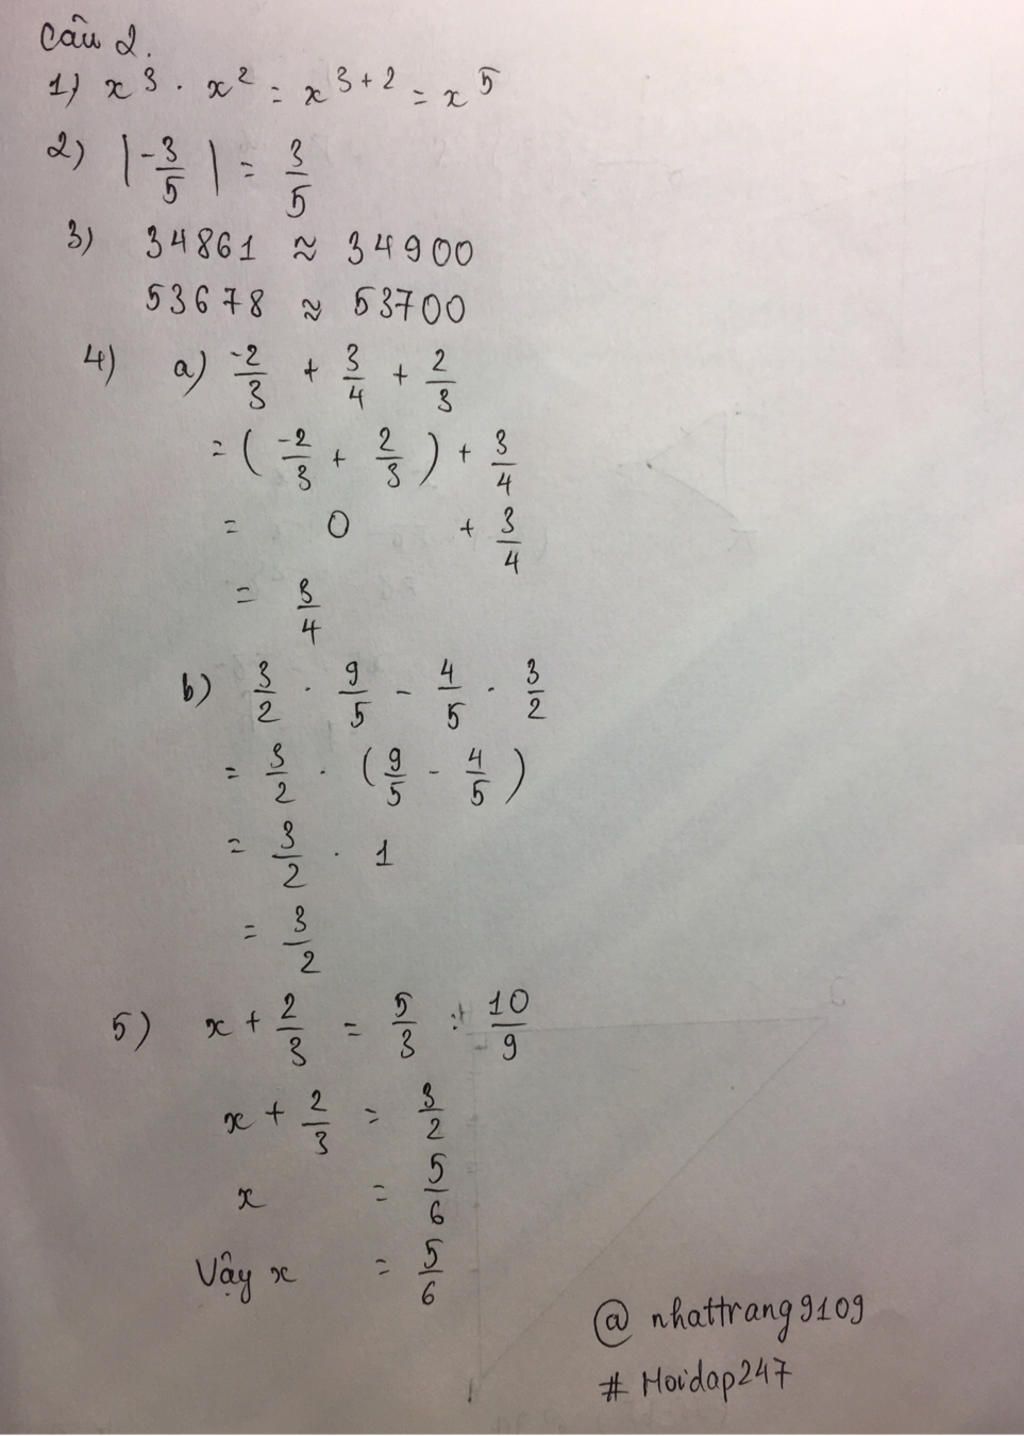 Câu 2.
1) x³ . x² = x³⁺² = x⁵
2) |-3/5| = 3/5
3) 34861 ≈ 34900
53678 ≈ 53700
4) a) -2/3 + 3/4 + 2/3
= (-2/3 + 2/3) + 3/4
= 0 + 3/4
= 3/4
b) 3/2 . 9/5 - 4/5 . 3/2
= 3/2 . (9/5 - 4/5)
= 3/2 . 1
= 3/2
5) x + 2/3 = 5/3 : 10/9
x + 2/3 = 3/2
x = 5/6
Vậy x = 5/6
@ nhattrang9109
# Hoidap247